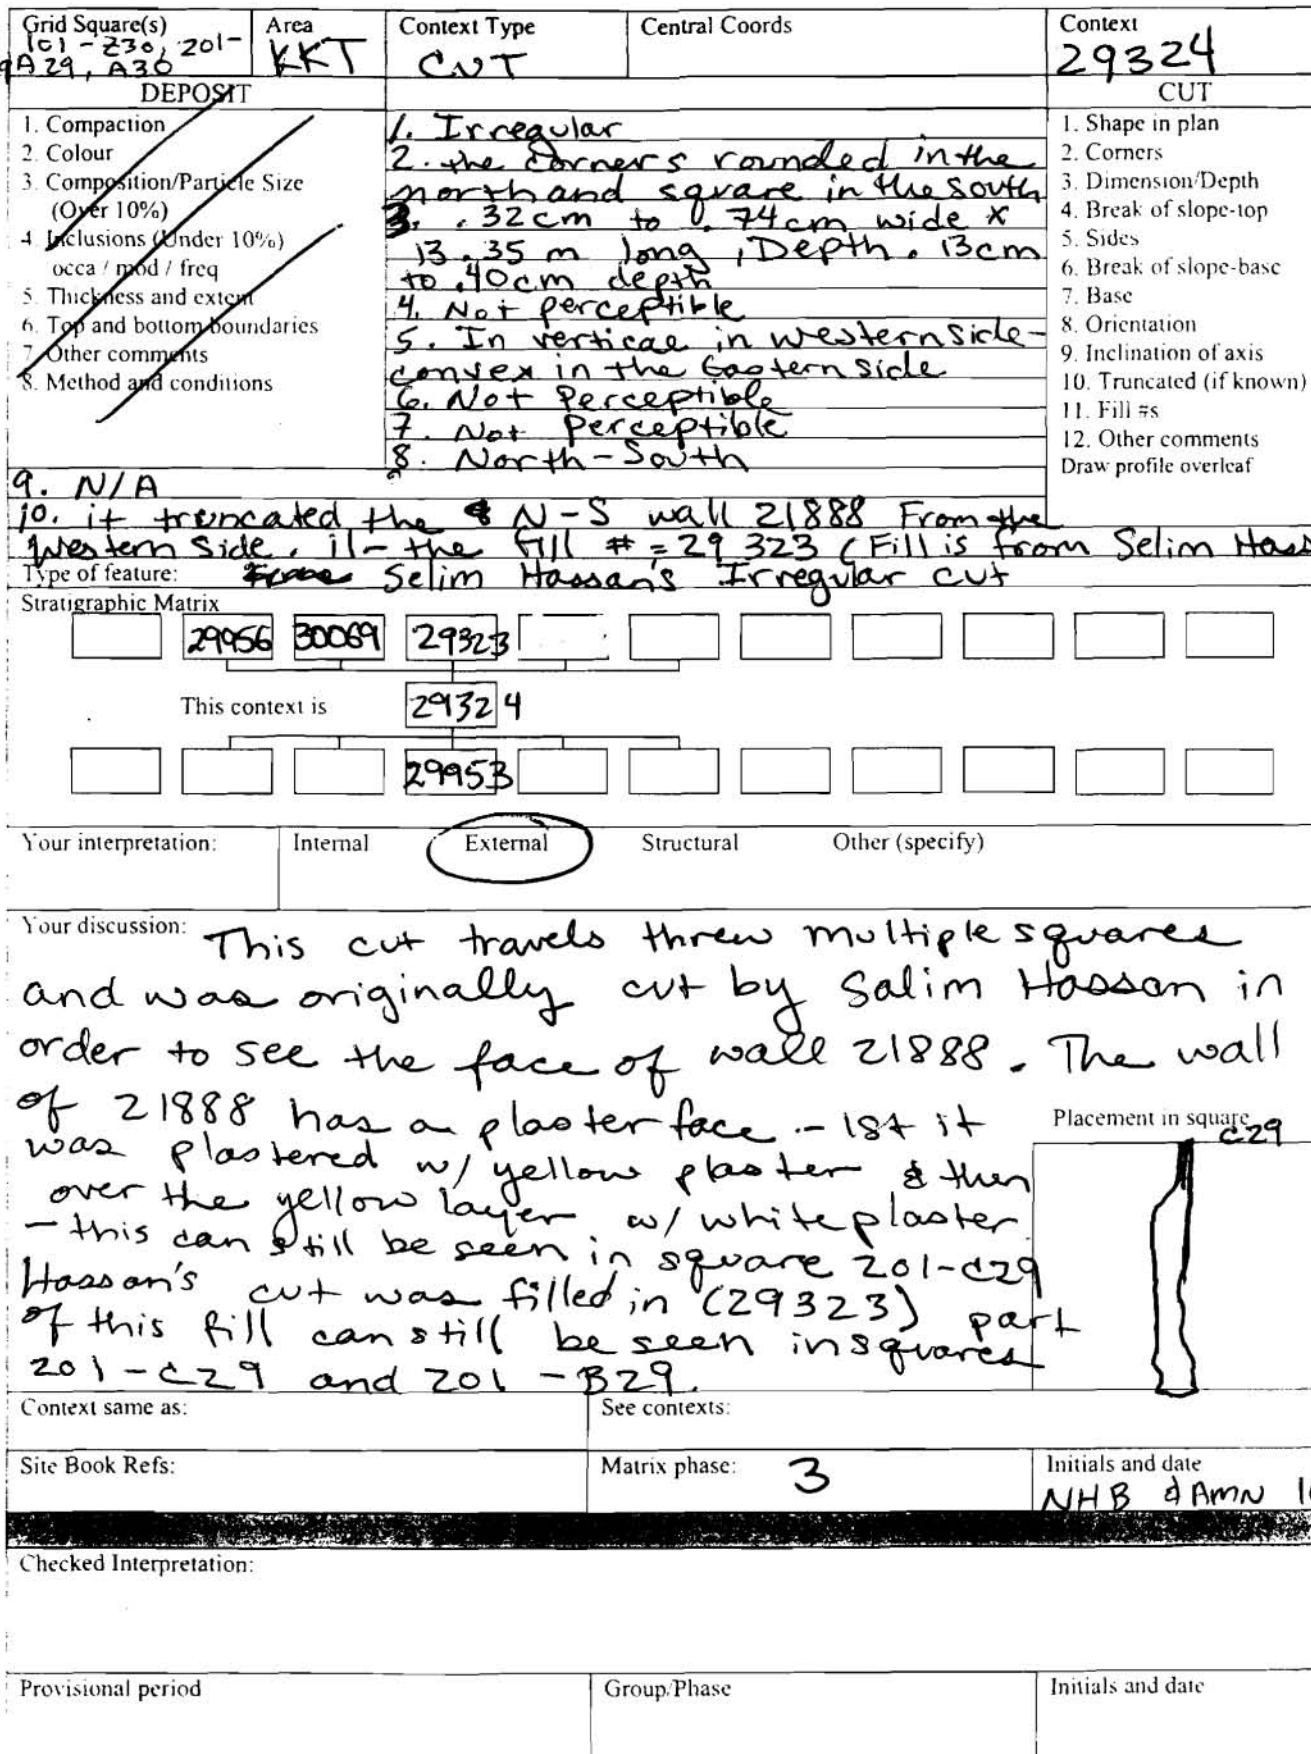 Grid Square(s)
101-Z30, 201-
A29, A30
Area
KKT
Context Type
CUT
Central Coords
Context
29324
DEPOSIT
CUT
1. Compaction
2. Colour
3. Composition/Particle Size
(Over 10%)
4. Inclusions (Under 10%)
occa / mod / freq
5. Thickness and extent
6. Top and bottom boundaries
7. Other comments
8. Method and conditions
1. Irregular
2. the corners rounded in the
north and square in the south
3. .32cm to 0.74cm wide x
13.35 m long, Depth .13cm
to .40cm depth
4. Not perceptible
5. In verticae in western side -
convex in the Eastern side
6. Not Perceptible
7. Not Perceptible
8. North-South
1. Shape in plan
2. Corners
3. Dimension/Depth
4. Break of slope-top
5. Sides
6. Break of slope-base
7. Base
8. Orientation
9. Inclination of axis
10. Truncated (if known)
11. Fill #s
12. Other comments
Draw profile overleaf
9. N/A
10. it truncated the N-S wall 21888 From the
Western Side. 11- the fill # = 29323 (Fill is from Selim Hass
Type of feature: Selim Hassan's Irregular cut
Stratigraphic Matrix
29956 30069 29323
This context is 29324
29953
Your interpretation: Internal External Structural Other (specify)
Your discussion: This cut travels threw multiple squares
and was originally cut by Salim Hassan in
order to see the face of wall 21888. The wall
of 21888 has a plaster face - 1st it
was plastered w/ yellow plaster & then
over the yellow layer w/ white plaster
- this can still be seen in square 201-C29
Hassan's cut was filled in (29323) part
of this fill can still be seen in squares
201-C29 and 201-B29.
Placement in square
C29
Context same as:
See contexts:
Site Book Refs:
Matrix phase: 3
Initials and date
NHB & AMN
Checked Interpretation:
Provisional period
Group/Phase
Initials and date